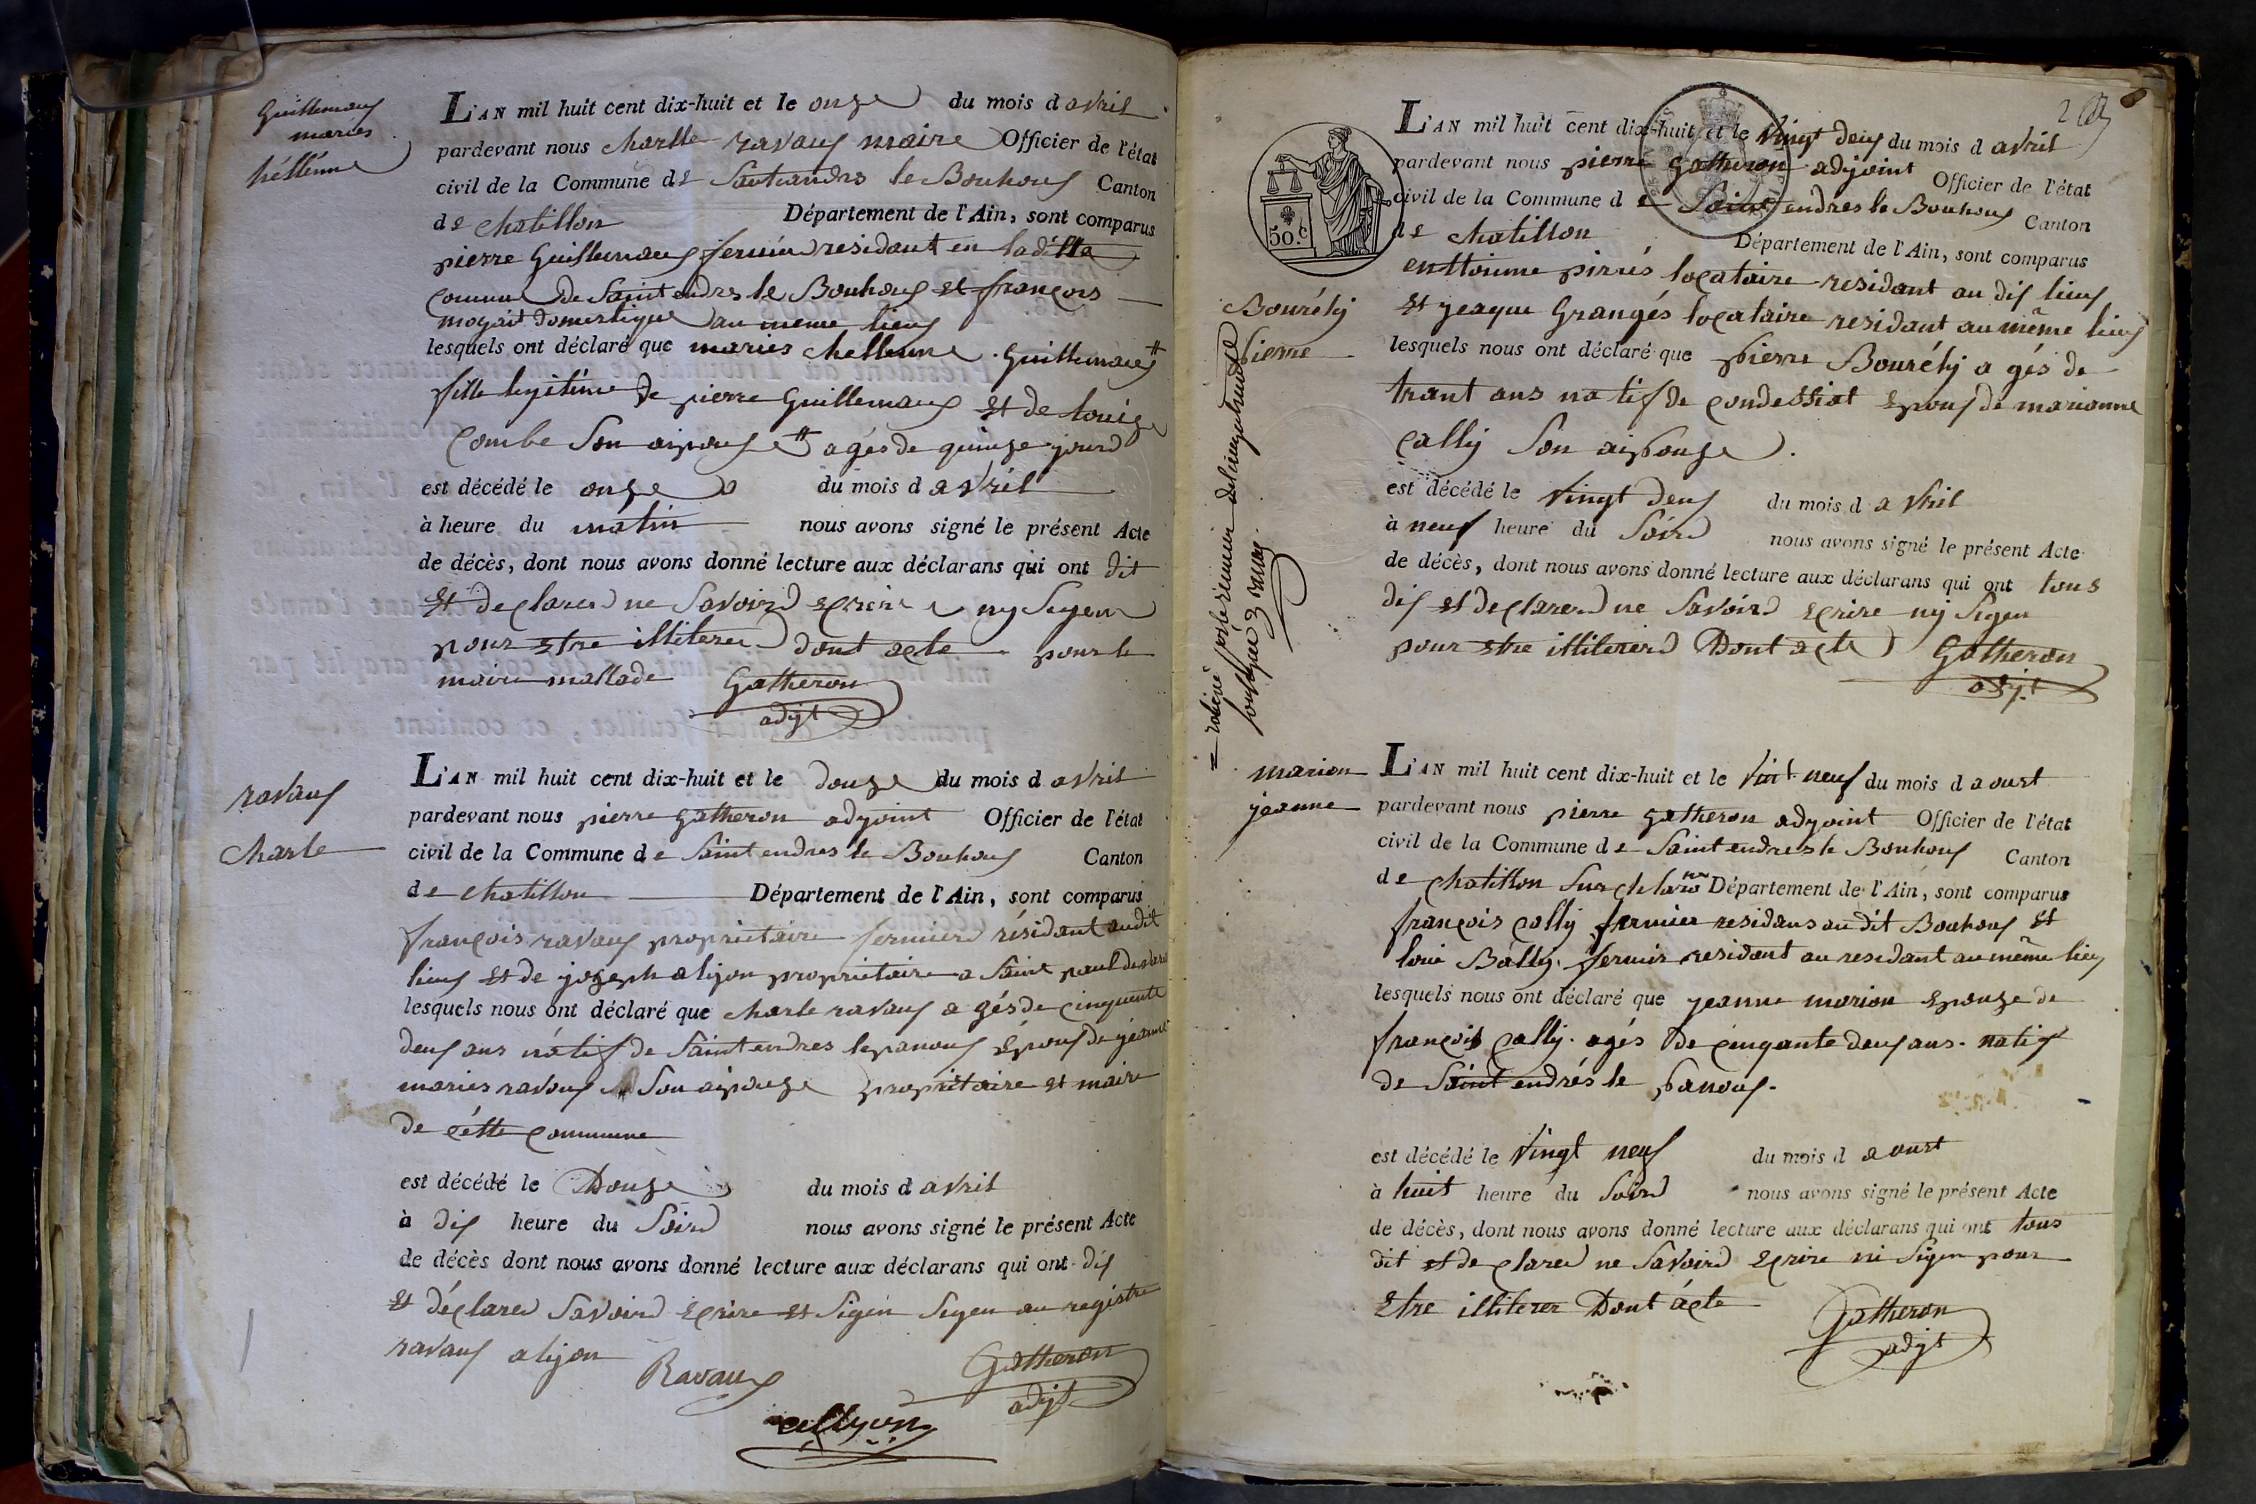 Guillemauf
maries
héllénne
L'AN mil huit cent dix-huit et le onze du mois d avril
pardevant nous charlle ravauf maire Officier de l'état
civil de la Commune de Saintandres le Bouhouf Canton
de chatillon Département de l'Ain, sont comparus
pierre Guillemauf fermier residant en la ditte
Commune de Saint endres le Bouhouf et françois
moyait domestique au meme lieuf
lesquels ont déclaré que maries chellenne Guillemauf #
fille legitime de pierre Guillemauf et de louize
Combe Son aipouze # agés de quinze jours
est décédé le onze du mois d avril
à heure du matin nous avons signé le présent Acte
de décès, dont nous avons donné lecture aux déclarans qui ont dit
et declarer ne Savoird ecrire ny Signer
pour etre illiterer dont acte pour le
maire mallade Gatheron
adjt
ravauf
Charle
L'AN mil huit cent dix-huit et le douze du mois d avril
pardevant nous pierre gatheron adyoint Officier de l'état
civil de la Commune de Saint endres le Bouhouf Canton
de chatillon Département de l'Ain, sont comparus
françois ravauf proprietaire fermier résidant audit
lieuf et de jozeph alyon proprietaire a Saint paul de
lesquels nous ont déclaré que charle ravauf agés de cinquente
deuf ans nátif de Saint endres lepanouf Epouf de jéanne
maries ravouf Son aipouze proprietaire et maire
de cétte Commune
est décédé le Douze du mois d avril
à dif heure du Soird nous avons signé le présent Acte
de décès dont nous avons donné lecture aux déclarans qui ont dif
et déclarer Savoird ecrire et Signer Signer au registre
ravauf alyon Ravaux Gatheron
adjt
allyon
2
L'AN mil huit cent dix-huit et le Vingt deuf du mois d avril
pardevant nous pierre gatheron adyoint Officier de l'état
civil de la Commune de Saint endres le Bouhouf Canton
de chatillon Département de l'Ain, sont comparus
50.c
enttoinne pirrés locataire residant au dif lieuf
et yeaque Grangés locataire residant au même lieuf
Bourély
pierre
lesquels nous ont déclaré que pierre Bourély agés de
trant ans natif de condessiat epouf de marianne
Cally Son aipouze.
est décédé le Vingt deuf du mois d avril
à neuf heure du Soird nous avons signé le présent Acte
de décès, dont nous avons donné lecture aux déclarans qui ont tous
dif et declarer ne Savoird ecrire ny Signer
pour etre illiterer Dont acte Gatheron
adj.t
marion
jeanne
L'AN mil huit cent dix-huit et le Vint neuf du mois d aoust
pardevant nous pierre gatheron adyoint Officier de l'état
civil de la Commune de Saint endres le Bouhouf Canton
de chatillon Sur Département de l'Ain, sont comparus
françois cally fermier residans audit Bouhouf et
loui Bally fermir residant au residant au même lieuf
lesquels nous ont déclaré que yeanne marion epouze de
françois Cally agés de cinqante deuf ans natif
de Saint endrés le panouf.
est décédé le Vingt neuf du mois d aoust
à huit heure du Soird nous avons signé le présent Acte
de décès, dont nous avons donné lecture aux déclarans qui ont tous
dit et declarer ne Savoird ecrire ni Signer pour
Etre illiterer Dont acte Gatheron
adjt